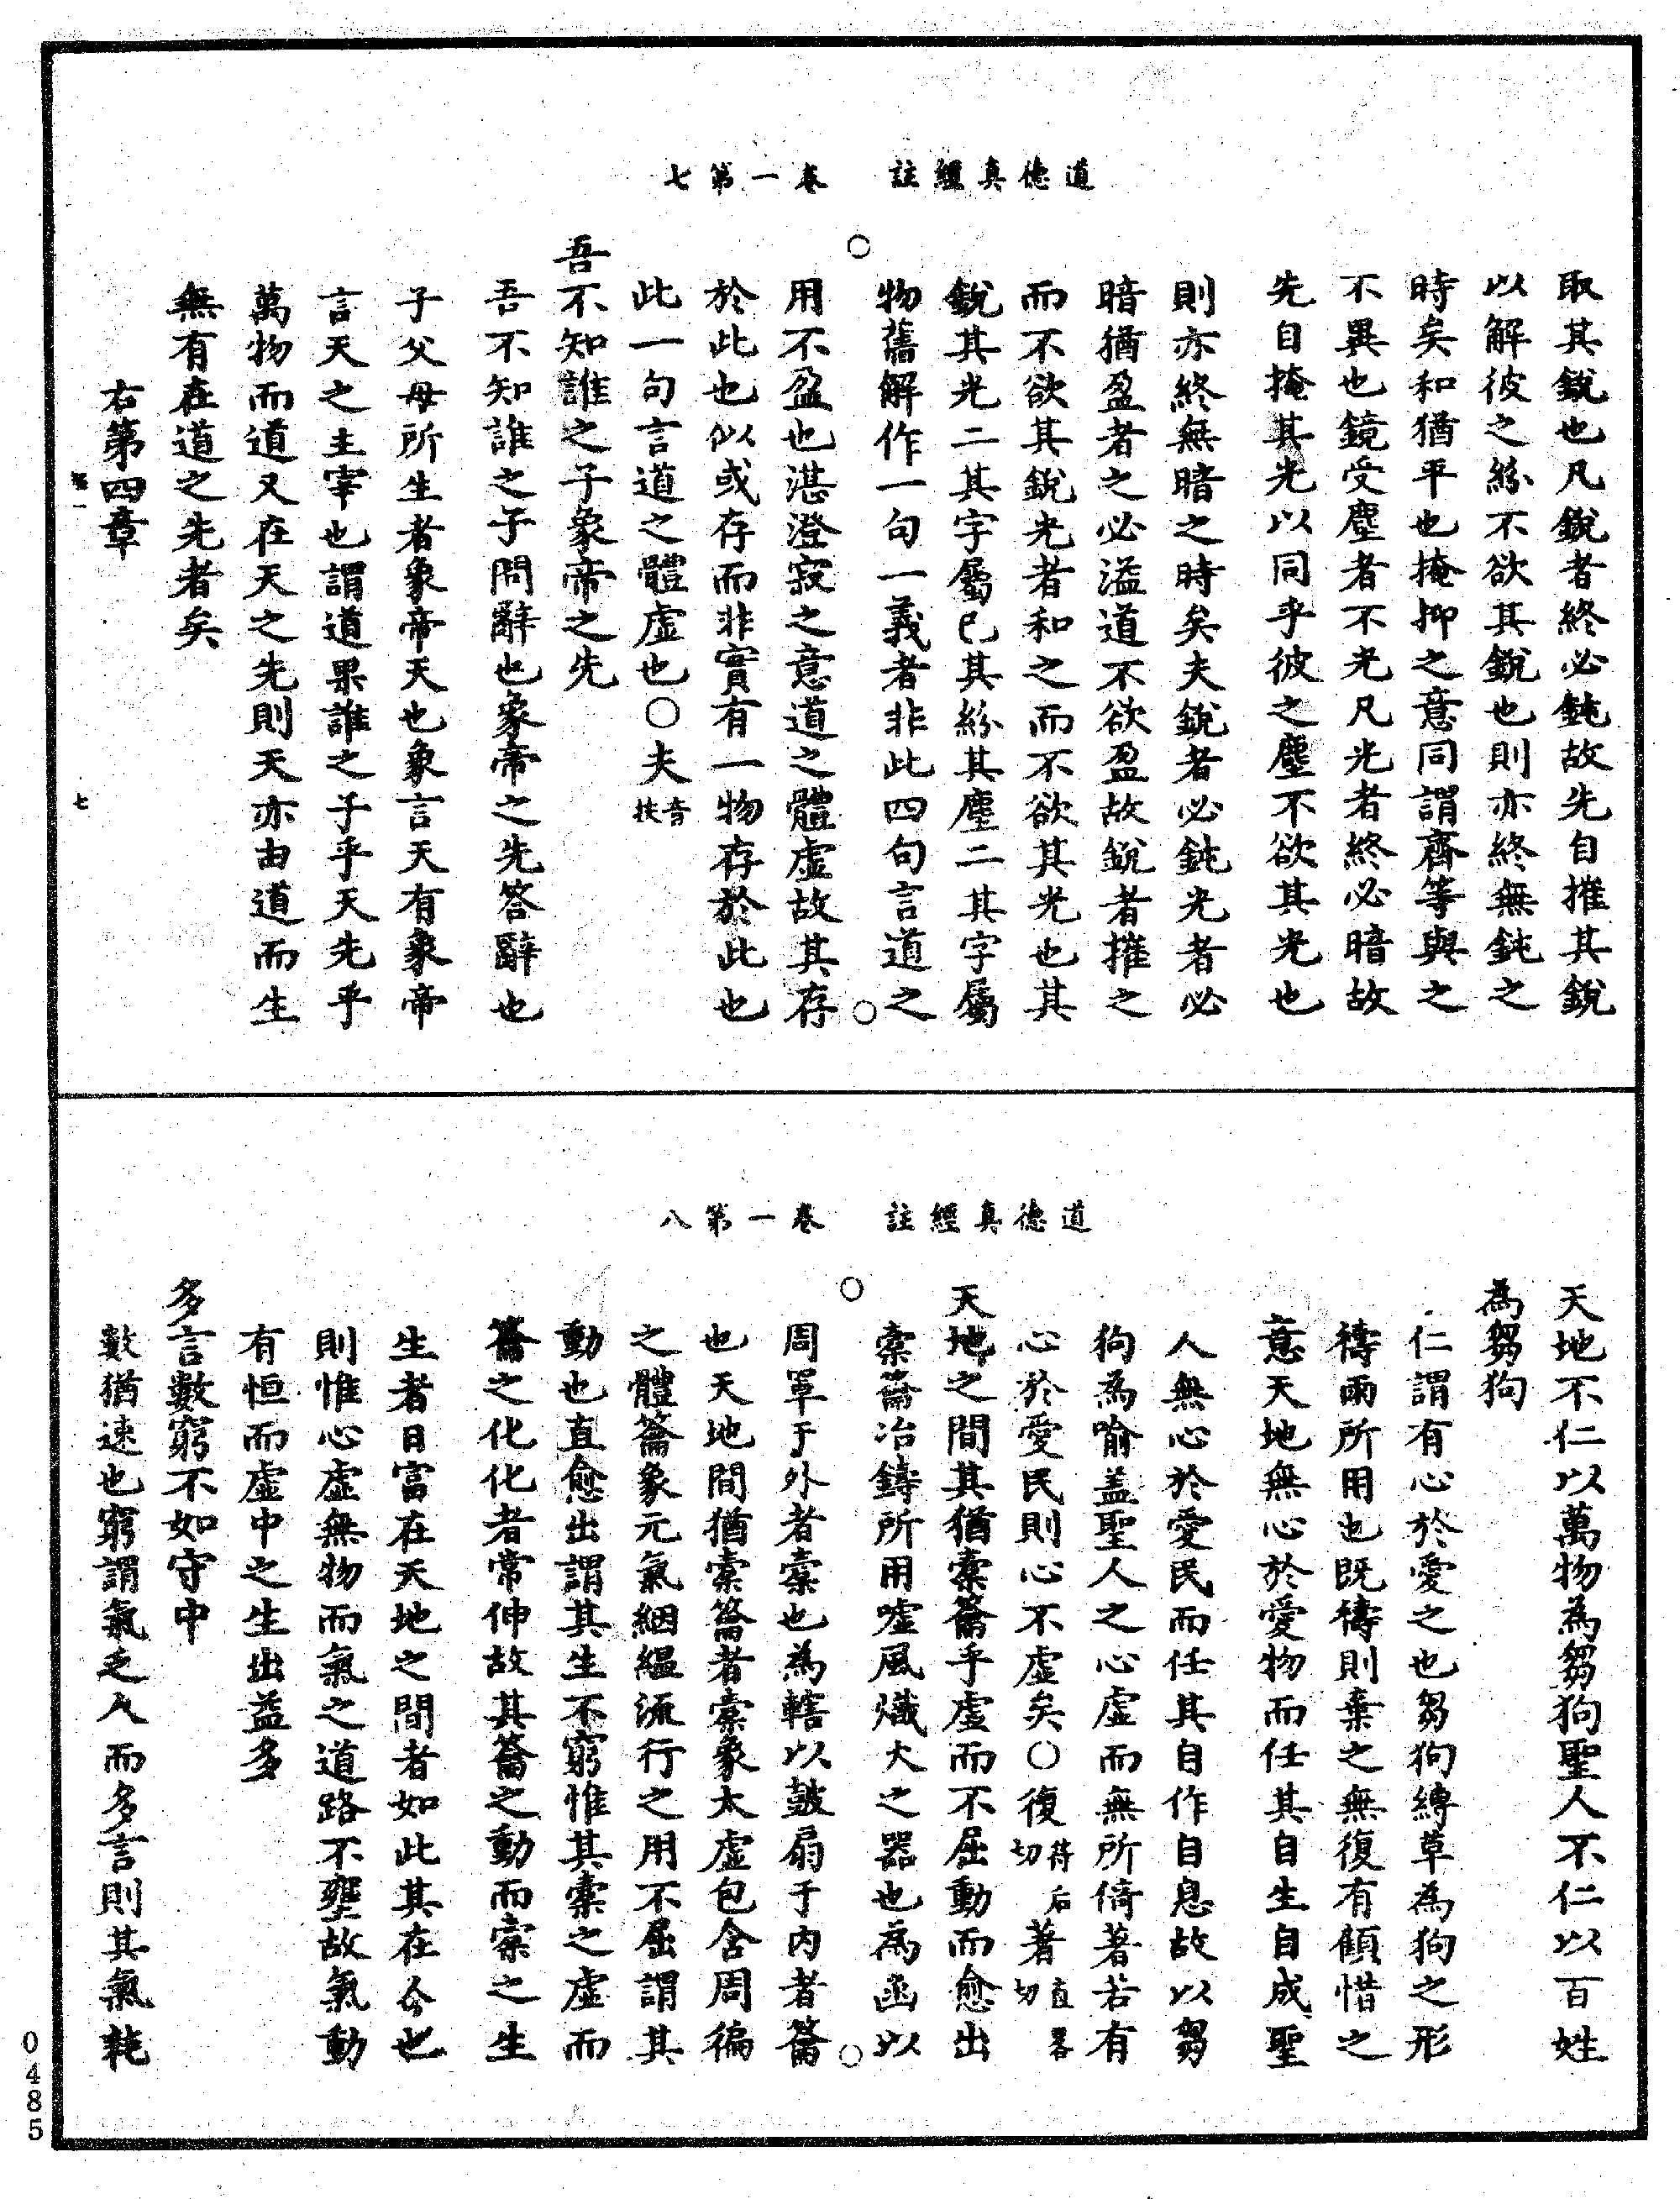 道德真經註　卷一第七
取其銳也凡銳者終必鈍故先自摧其銳
以解彼之紛不欲其銳也則亦終無鈍之
時矣和猶平也掩抑之意同謂齊等與之
不異也鏡受塵者不光凡光者終必暗故
先自掩其光以同乎彼之塵不欲其光也
則亦終無暗之時矣夫銳者必鈍光者必
暗猶盈者之必溢道不欲盈故銳者摧之
而不欲其銳光者和之而不欲其光也其
銳其光二其字屬己其紛其塵二其字屬
物舊解作一句一義者非此四句言道之
用不盈也湛澄寂之意道之體虛故其存
於此也似或存而非實有一物存於此也
此一句言道之體虛也○夫音扶
吾不知誰之子象帝之先
吾不知誰之子問辭也象帝之先答辭也
子父母所生者象帝天也象言天有象帝
言天之主宰也謂道果誰之子乎天先乎
萬物而道又在天之先則天亦由道而生
無有在道之先者矣
右第四章
七
道德真經註　卷一第八
天地不仁以萬物為芻狗聖人不仁以百姓
為芻狗
仁謂有心於愛之也芻狗縛草為狗之形
禱雨所用也既禱則棄之無復有顧惜之
意天地無心於愛物而任其自生自成聖
人無心於愛民而任其自作自息故以芻
狗為喻盖聖人之心虛而無所倚著若有
心於愛民則心不虛矣○復符后切著直畧切
天地之間其猶橐籥乎虛而不屈動而愈出
橐籥冶鑄所用噓風熾火之器也為函以
周罩于外者橐也為轄以鼓扇于內者籥
也天地間猶橐籥者橐象太虛包含周徧
之體籥象元氣絪縕流行之用不屈謂其
動也直愈出謂其生不窮惟其橐之虛而
籥之化化者常伸故其籥之動而橐之生
生者日富在天地之間者如此其在人也
則惟心虛無物而氣之道路不壅故氣動
有恒而虛中之生出益多
多言數窮不如守中
數猶速也窮謂氣乏人而多言則其氣耗
0485